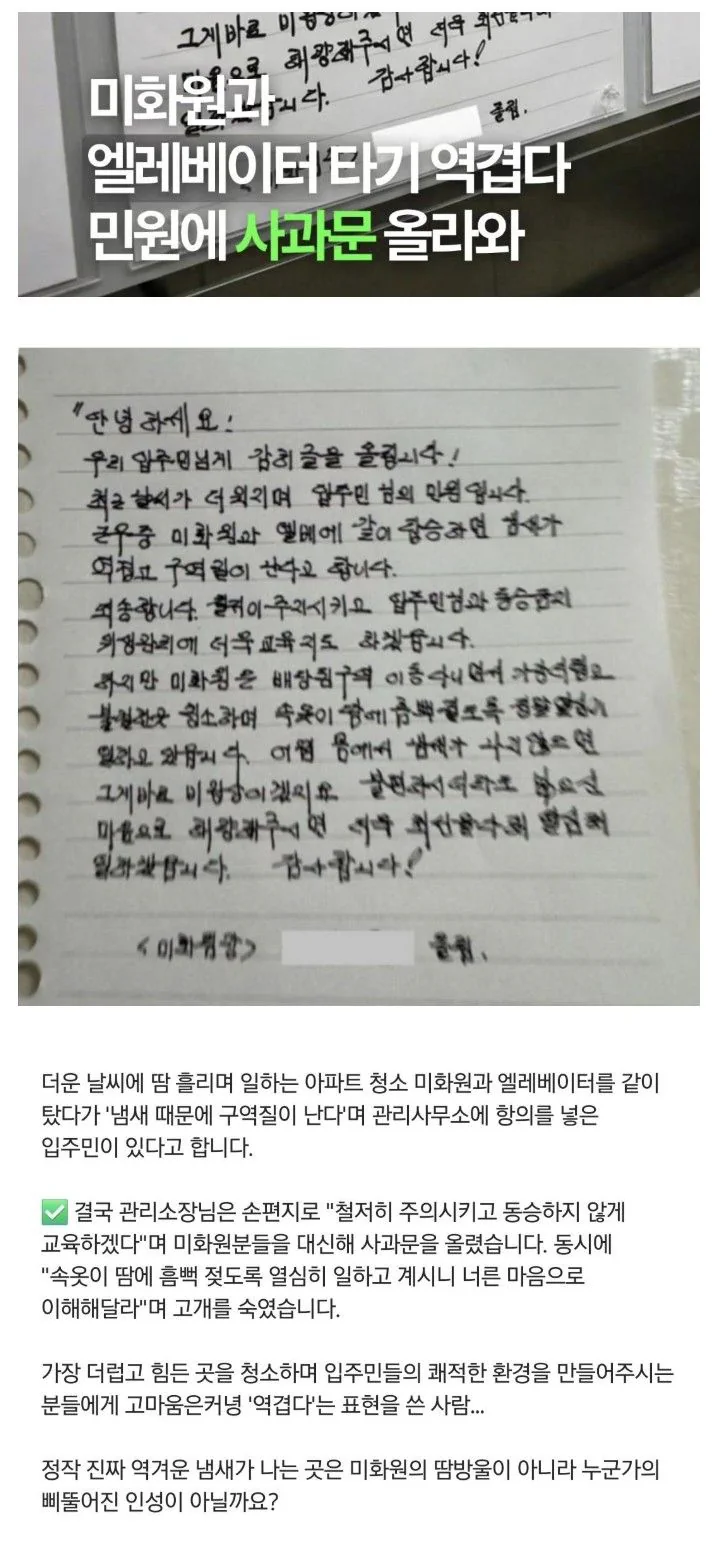 그게바로
미화원과
엘레베이터 타기 역겹다
민원에 사과문 올라와
감사합니다!
올림.
"안녕하세요!
우리 입주민님게 감히 글을 올립니다!
최근 날씨가 더워지며 입주민 님의 민원입니다.
근무중 미화원과 엘베에 같이 탑승하면 냄새가
역겹고 구역질이 난다고 합니다.
죄송합니다. 철저히 주의시키고 입주민님과 동승금지
위생관리에 더욱 교육지도 하겠습니다.
하지만 미화원은 배당된구역 이동다니면서 가장더럽고
청소하며 속옷이 땀에 흠뻑젖도록 정말 열심히
일하고 있습니다. 어찌 몸에서 냄새가 나지않으면
그게바로 비정상이겠지요 불편하시더라도 넓으신
마음으로 해량해주시면 더욱 최선을다해 열심히
일하겠습니다. 감사합니다!
<미화팀장> 올림.
더운 날씨에 땀 흘리며 일하는 아파트 청소 미화원과 엘레베이터를 같이
탔다가 '냄새 때문에 구역질이 난다'며 관리사무소에 항의를 넣은
입주민이 있다고 합니다.
✅ 결국 관리소장님은 손편지로 "철저히 주의시키고 동승하지 않게
교육하겠다"며 미화원분들을 대신해 사과문을 올렸습니다. 동시에
"속옷이 땀에 흠뻑 젖도록 열심히 일하고 계시니 너른 마음으로
이해해달라"며 고개를 숙였습니다.
가장 더럽고 힘든 곳을 청소하며 입주민들의 쾌적한 환경을 만들어주시는
분들에게 고마움은커녕 '역겹다'는 표현을 쓴 사람...
정작 진짜 역겨운 냄새가 나는 곳은 미화원의 땀방울이 아니라 누군가의
삐뚤어진 인성이 아닐까요?